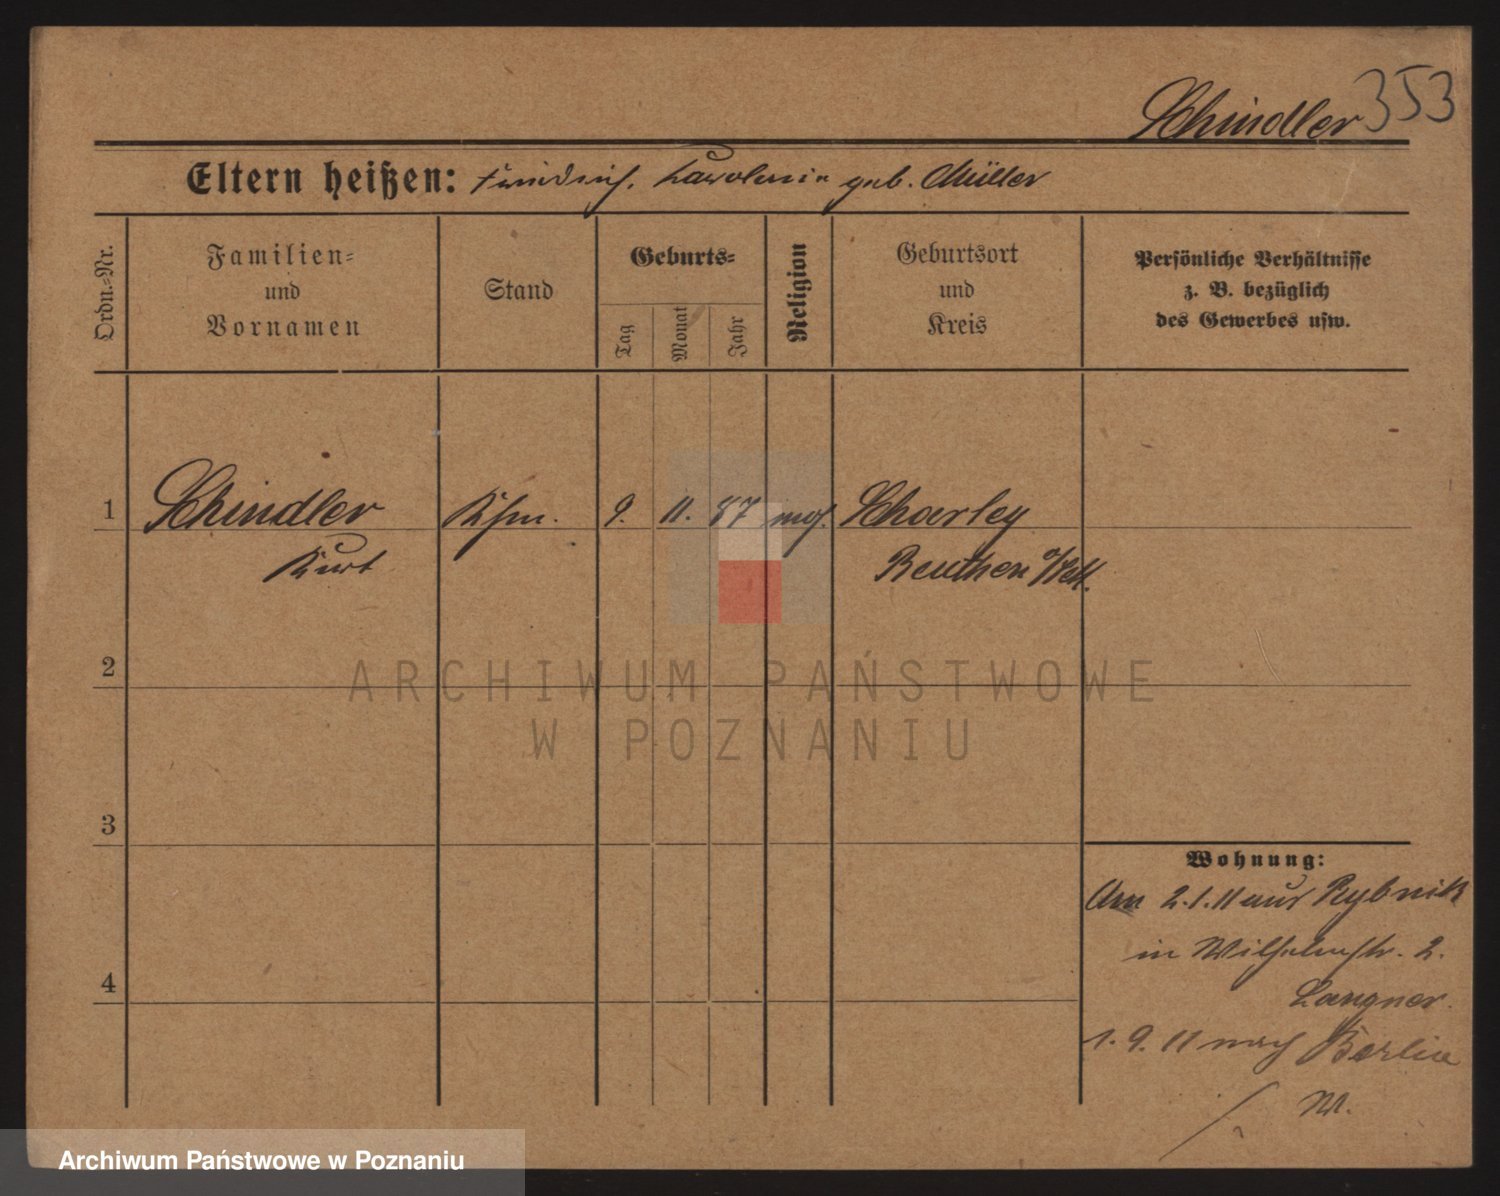 Schindler 353
Eltern heißen: Friedrich, Karoline geb. Müller
Ordn.=Nr.
Familien=
und
Vornamen
Stand
Geburts=
Tag
Monat
Jahr
Religion
Geburtsort
und
Kreis
Persönliche Verhältnisse
z. B. bezüglich
des Gewerbes usw.
1 Schindler Kfm. 9. 11. 87 Scharley
Kurt Beuthen
2
3
4
Wohnung:
Am 2.1.11 aus Rybnik
in Wilhelmstr. 2.
Langner.
1.9.11 nach Berlin
ARCHIWUM PAŃSTWOWE
W POZNANIU
Archiwum Państwowe w Poznaniu